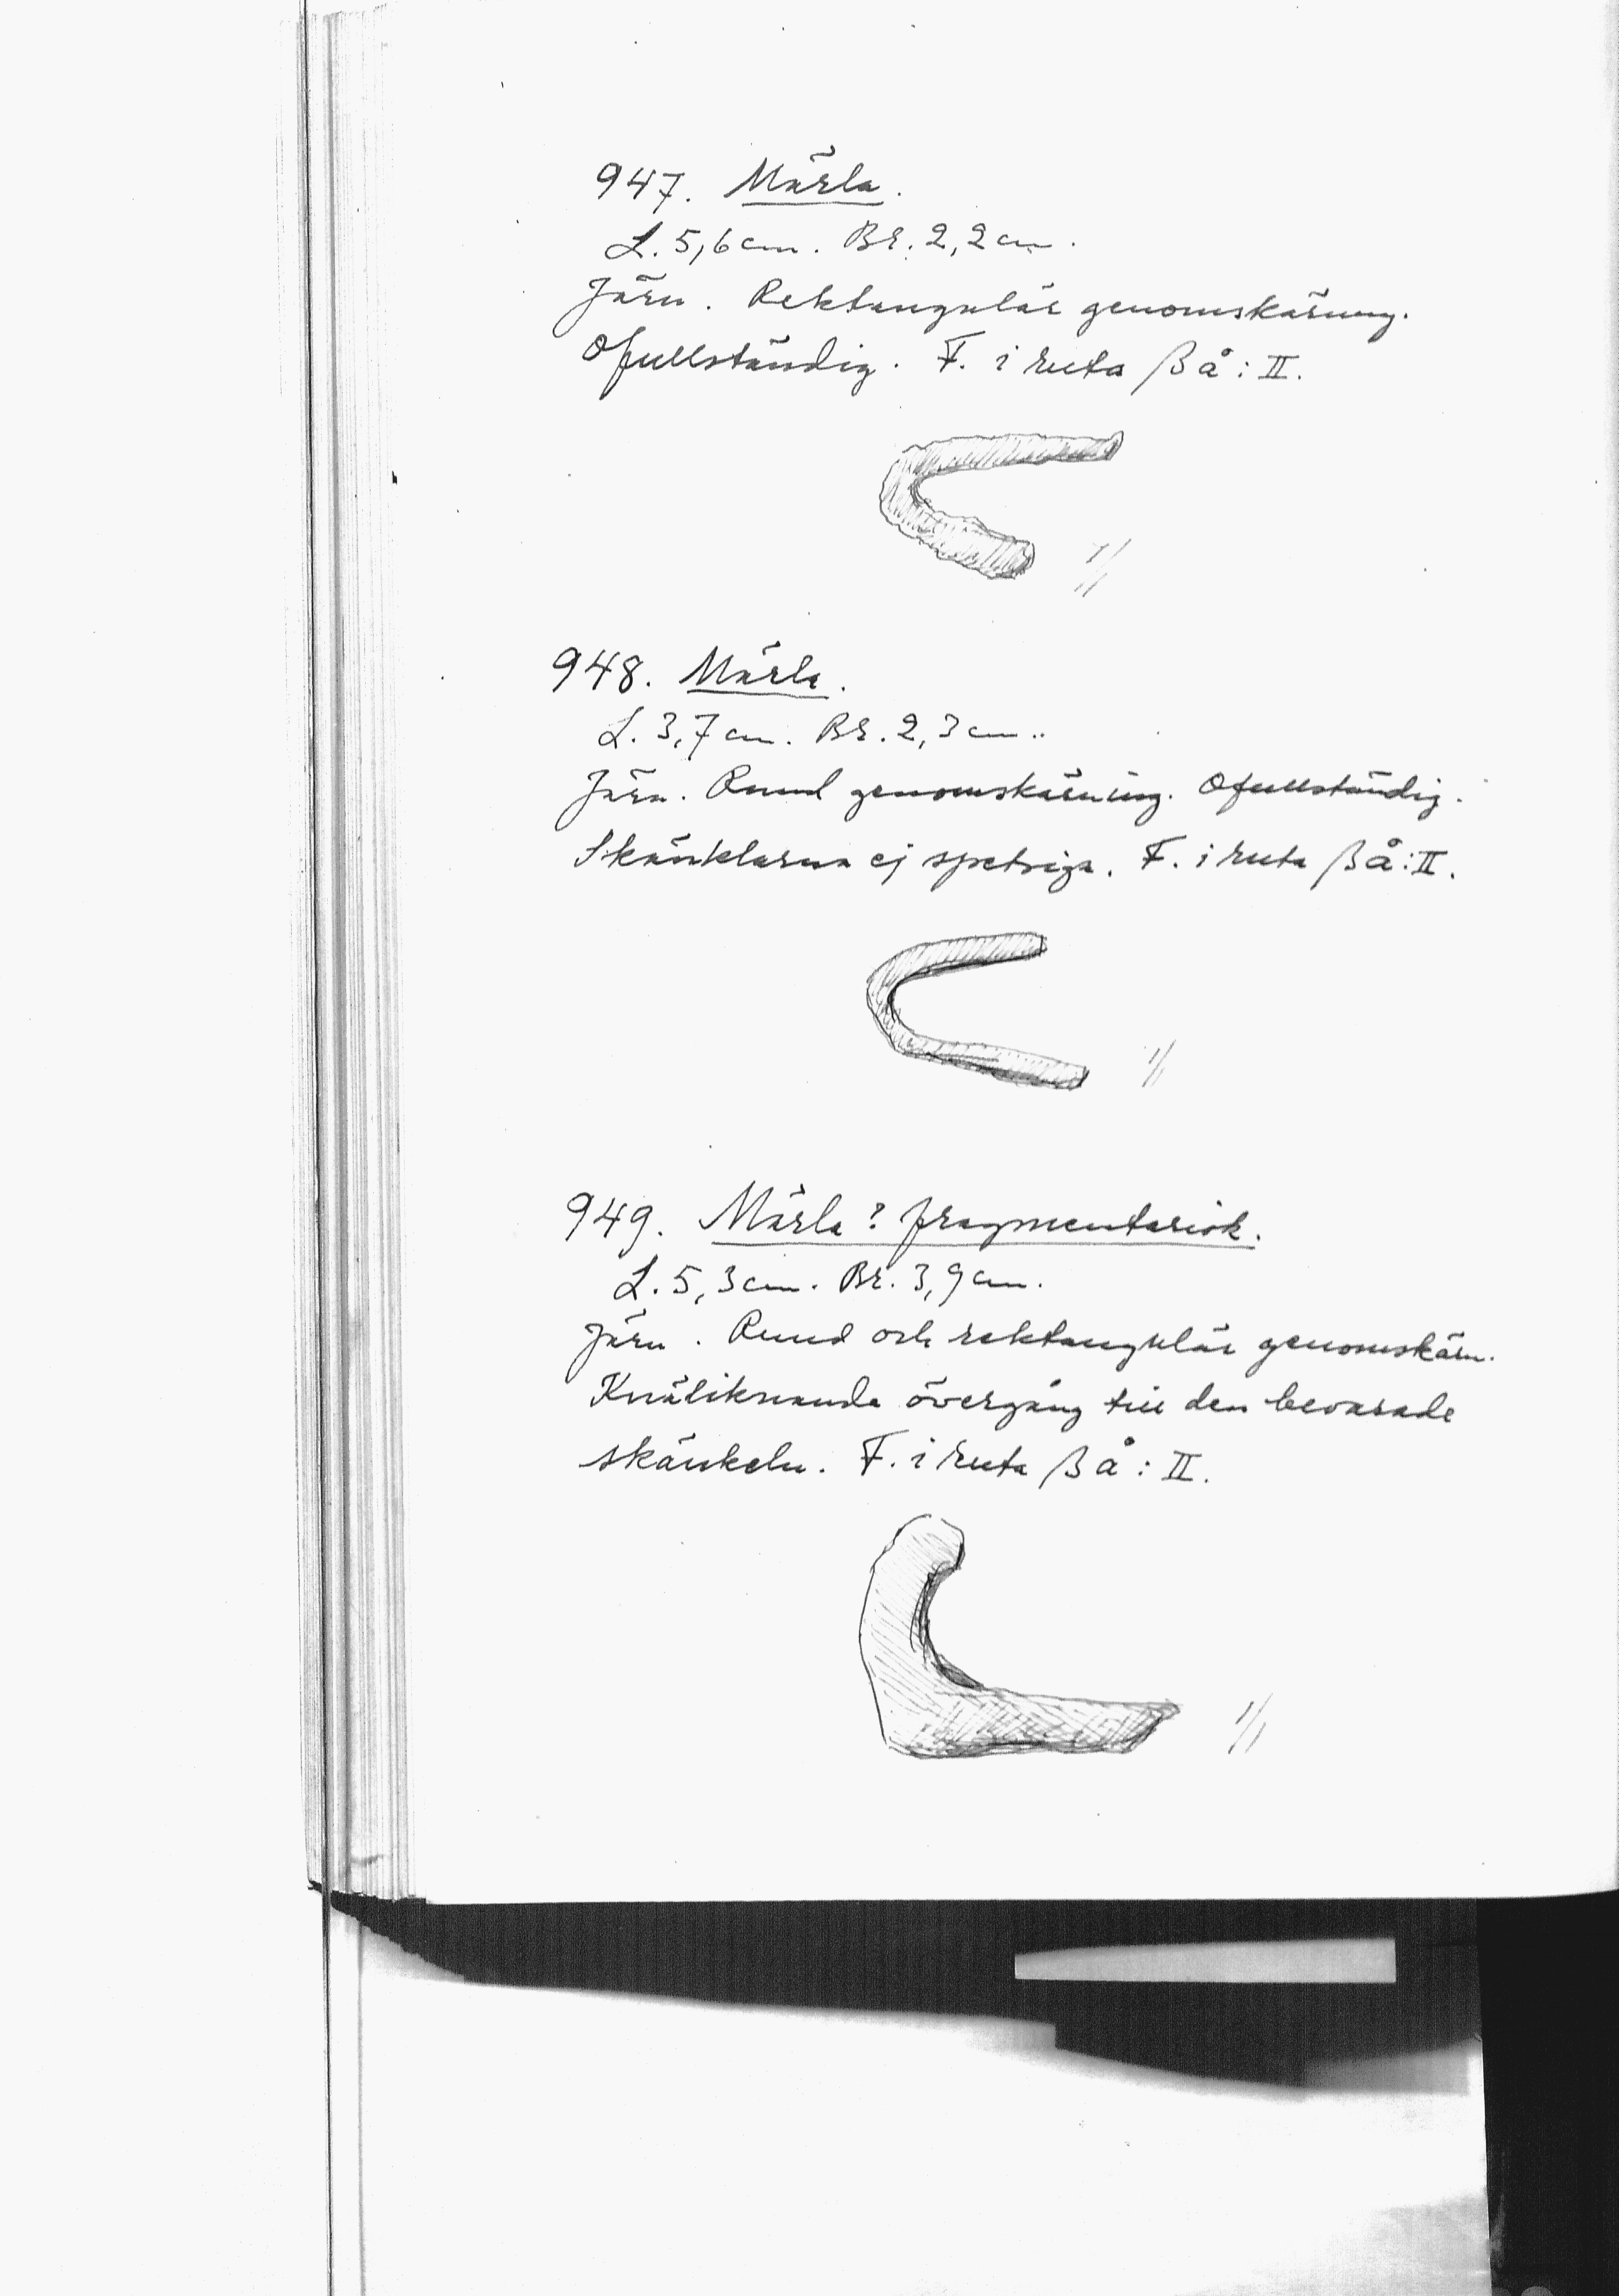 947. Märla.
L. 5,6 cm. Br. 2,2 cm.
Järn. Rektangulär genomskärning.
Ofullständig. F. i ruta ßå: II.
1/1
948. Märla.
L. 3,7 cm. Br. 2,3 cm.
Järn. Rund genomskärning. Ofullständig.
Skänklarna ej spetsiga. F. i ruta ßå: II.
1/1
949. Märla? fragmentarisk.
L. 5,3 cm. Br. 3,9 cm.
Järn. Rund och rektangulär genomskärn.
Knäliknande övergång till den bevarade
skänkeln. F. i ruta ßå: II.
1/1